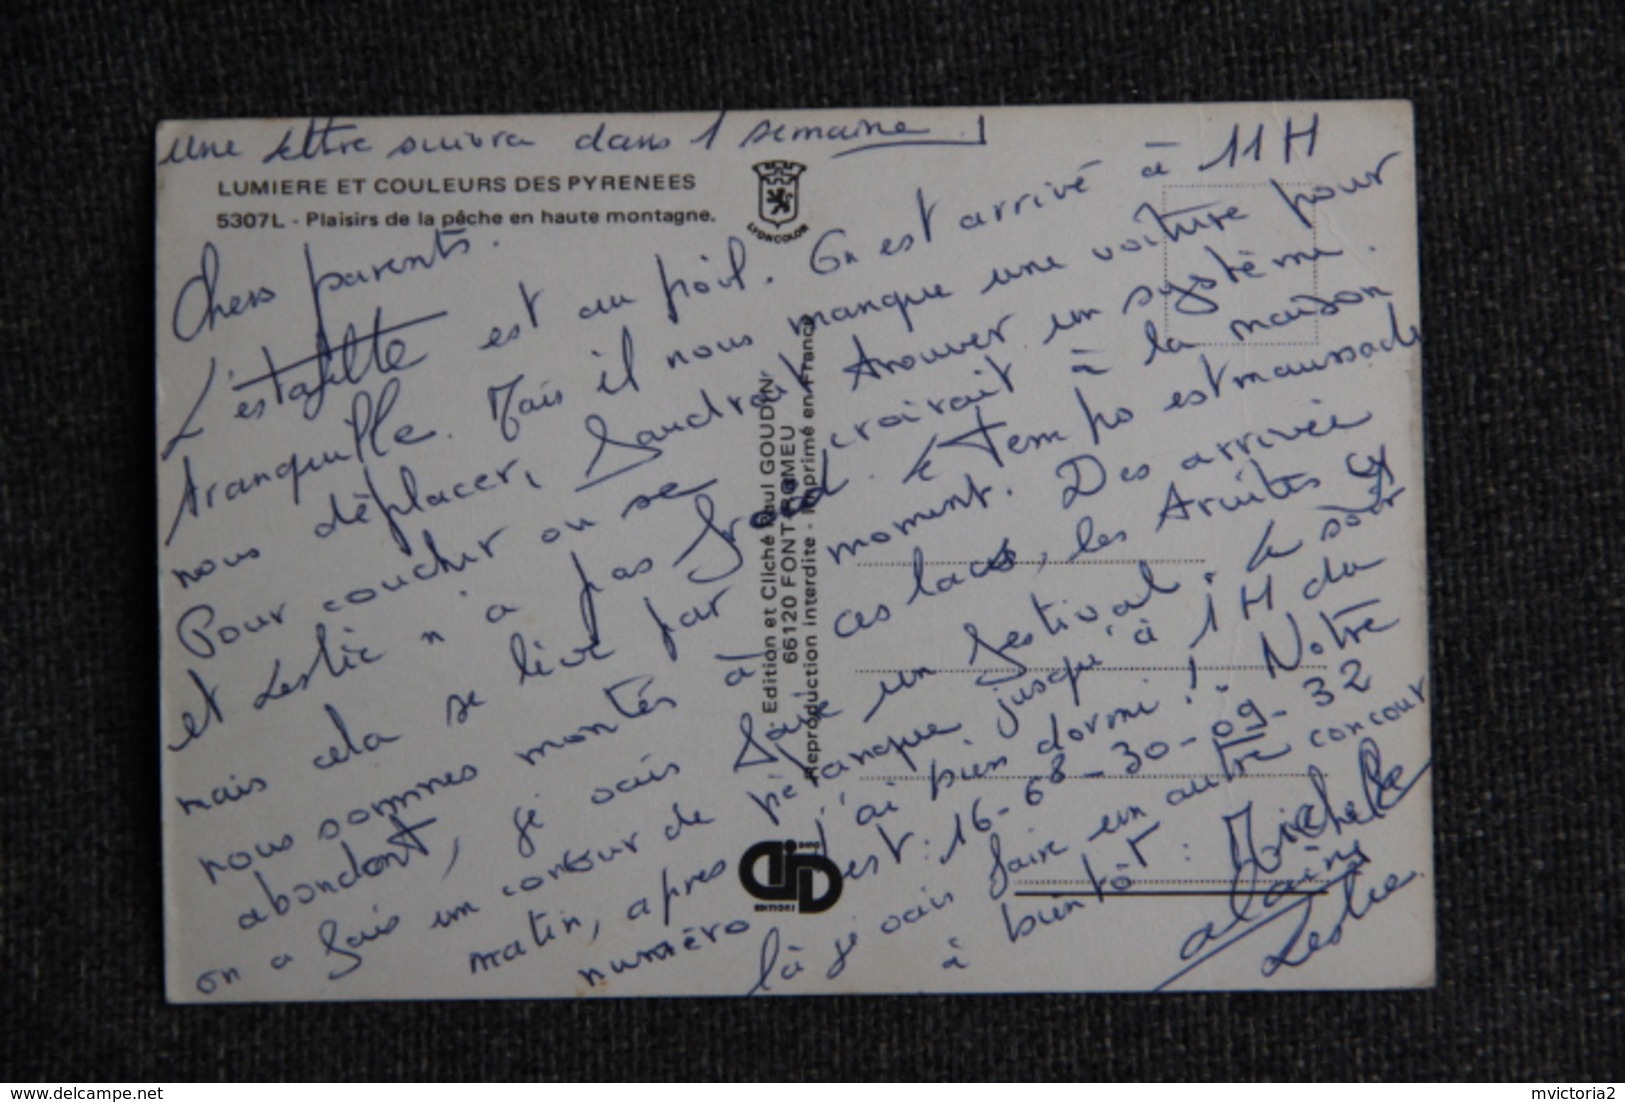 une lettre suivra dans 1 semaine !
LUMIERE ET COULEURS DES PYRENEES
5307L - Plaisirs de la pêche en haute montagne.
LYONCOLOR
Chers parents.
L'estafette est au poil. On est arrivé à 11H
tranquille. Mais il nous manque une voiture pour
nous déplacer, faudrait trouver un système.
Pour coucher on se croirait à la maison
et Leslie n'a pas froid. Le temps est maussade
mais cela se lève par moment. Des arrivée
nous sommes montés à ces lacs, les truites
abondent, je vais faire un festival. Le soir
on a fais un concour de pétanque jusqu'à 1H du
matin, apres j'ai bien dormi ! Notre
numéro est : 16-68-30-09-32
là je vais faire un autre concour
à bientôt : Michelle
alain
Leslie
Edition et Cliché Paul GOUDIN
66120 FONT ROMEU
Reproduction interdite - Imprimé en France
EDITIONS
mvictoria2